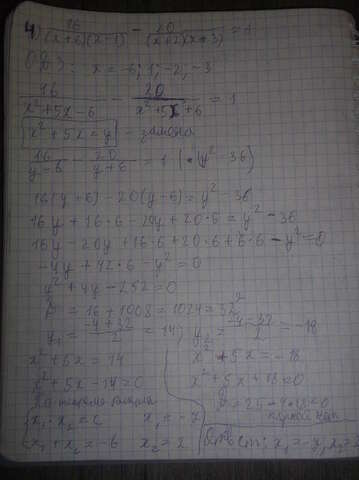 4) 16/((x+6)(x-1)) - 20/((x+2)(x+3)) = 1
ОДЗ: x = -6; 1; -2; -3
16/(x²+5x-6) - 20/(x²+5x+6) = 1
x²+5x=y - замена
16/(y-6) - 20/(y+6) = 1 | ·(y²-36)
16(y+6) - 20(y-6) = y² - 36
16y + 16·6 - 20y + 20·6 = y² - 36
16y - 20y + 16·6 + 20·6 + 6·6 - y² = 0
-4y + 42·6 - y² = 0
y² + 4y - 252 = 0
D = 16 + 1008 = 1024 = 32²
y₁ = (-4+32)/2 = 14; y₂ = (-4-32)/2 = -18
x²+5x = 14
x²+5x-14=0
По теореме
x₁·x₂ = c x₁ = -7
x₁+x₂ = -6 x₂ = 2
x²+5x = -18
x²+5x+18=0
D = 25-4·18<0
корней нет
Ответ: x₁=-7, x₂=2